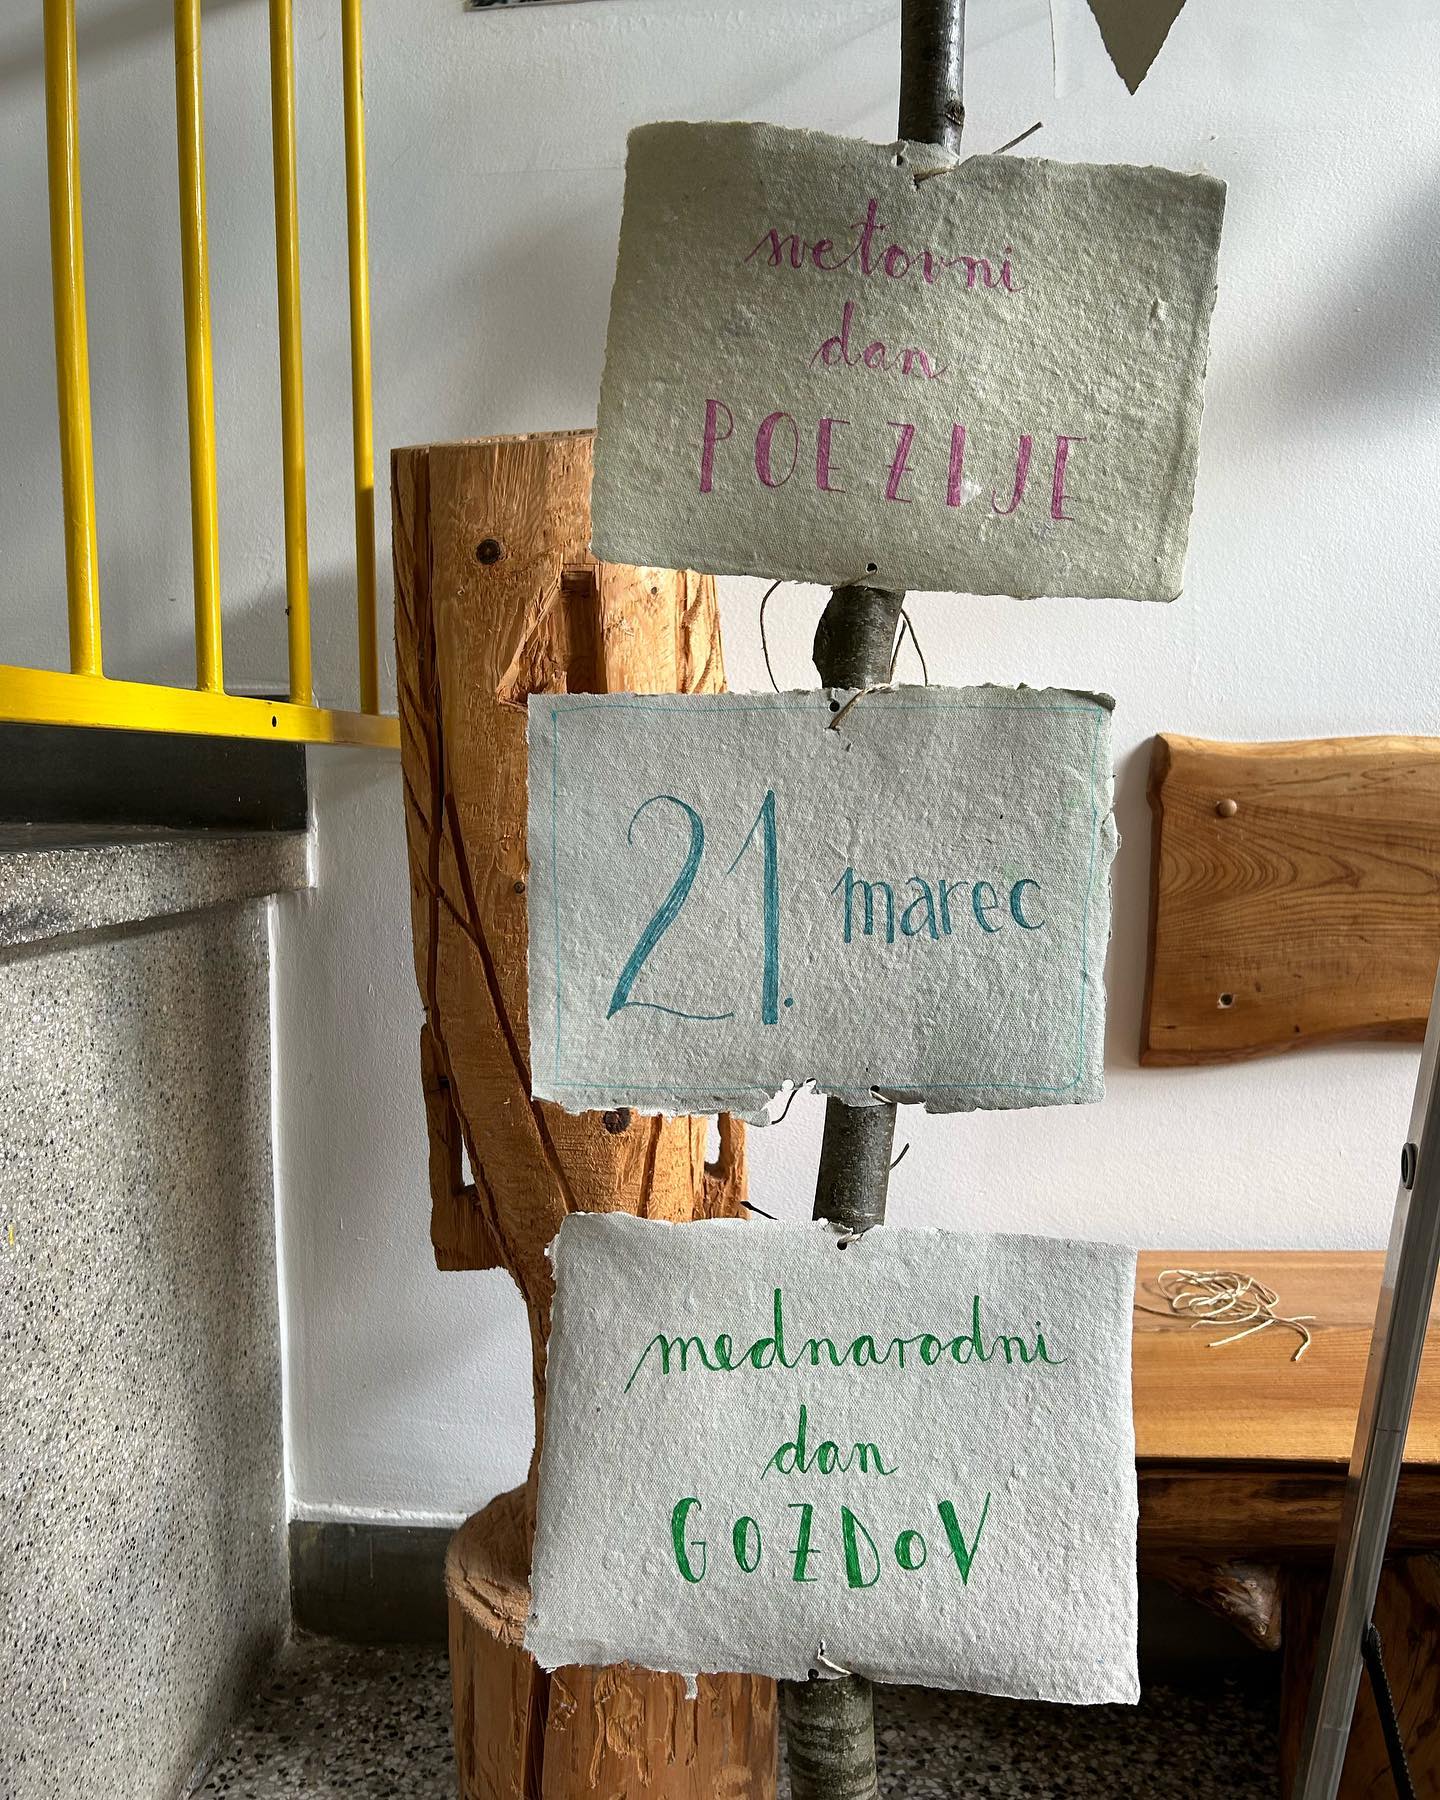 svetovni
dan
POEZIJE
21. marec
mednarodni
dan
GOZDOV